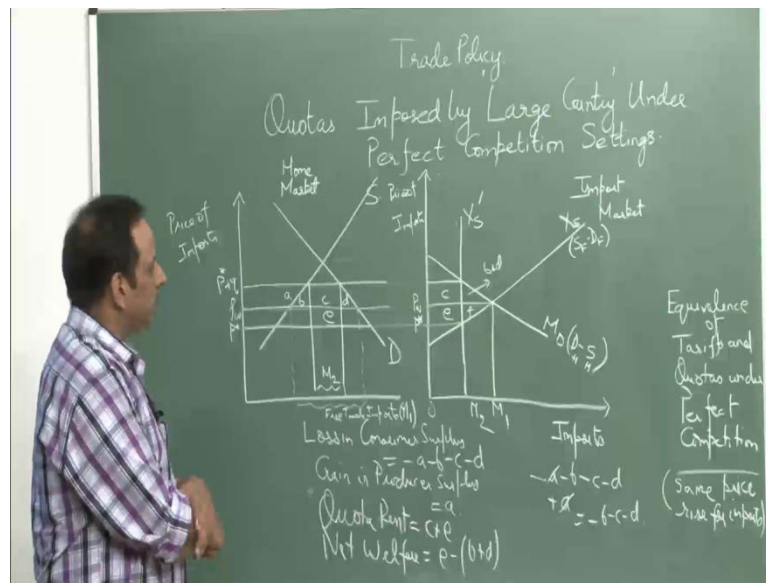 Trade Policy
Quotas Imposed by Large Country Under
Perfect Competition Settings.
Home
Market
S
Price of
Imports
a b c d
e
D
M2
Free Trade Imports (M1)
Price of
Imports
Xs'
Import
Market
Xs
(SF-DF)
b+d
c
e f
MD (DH-SH)
0 M2 M1
Imports
Loss in Consumer Surplus
= -a-b-c-d
Gain in Producer Surplus
= a
Quota Rent = c+e
Net Welfare = e-(b+d)
-a-b-c-d
+a
= -b-c-d
Equivalence
of
Tariffs and
Quotas under
Perfect
Competition
(Same price
rise for imports)